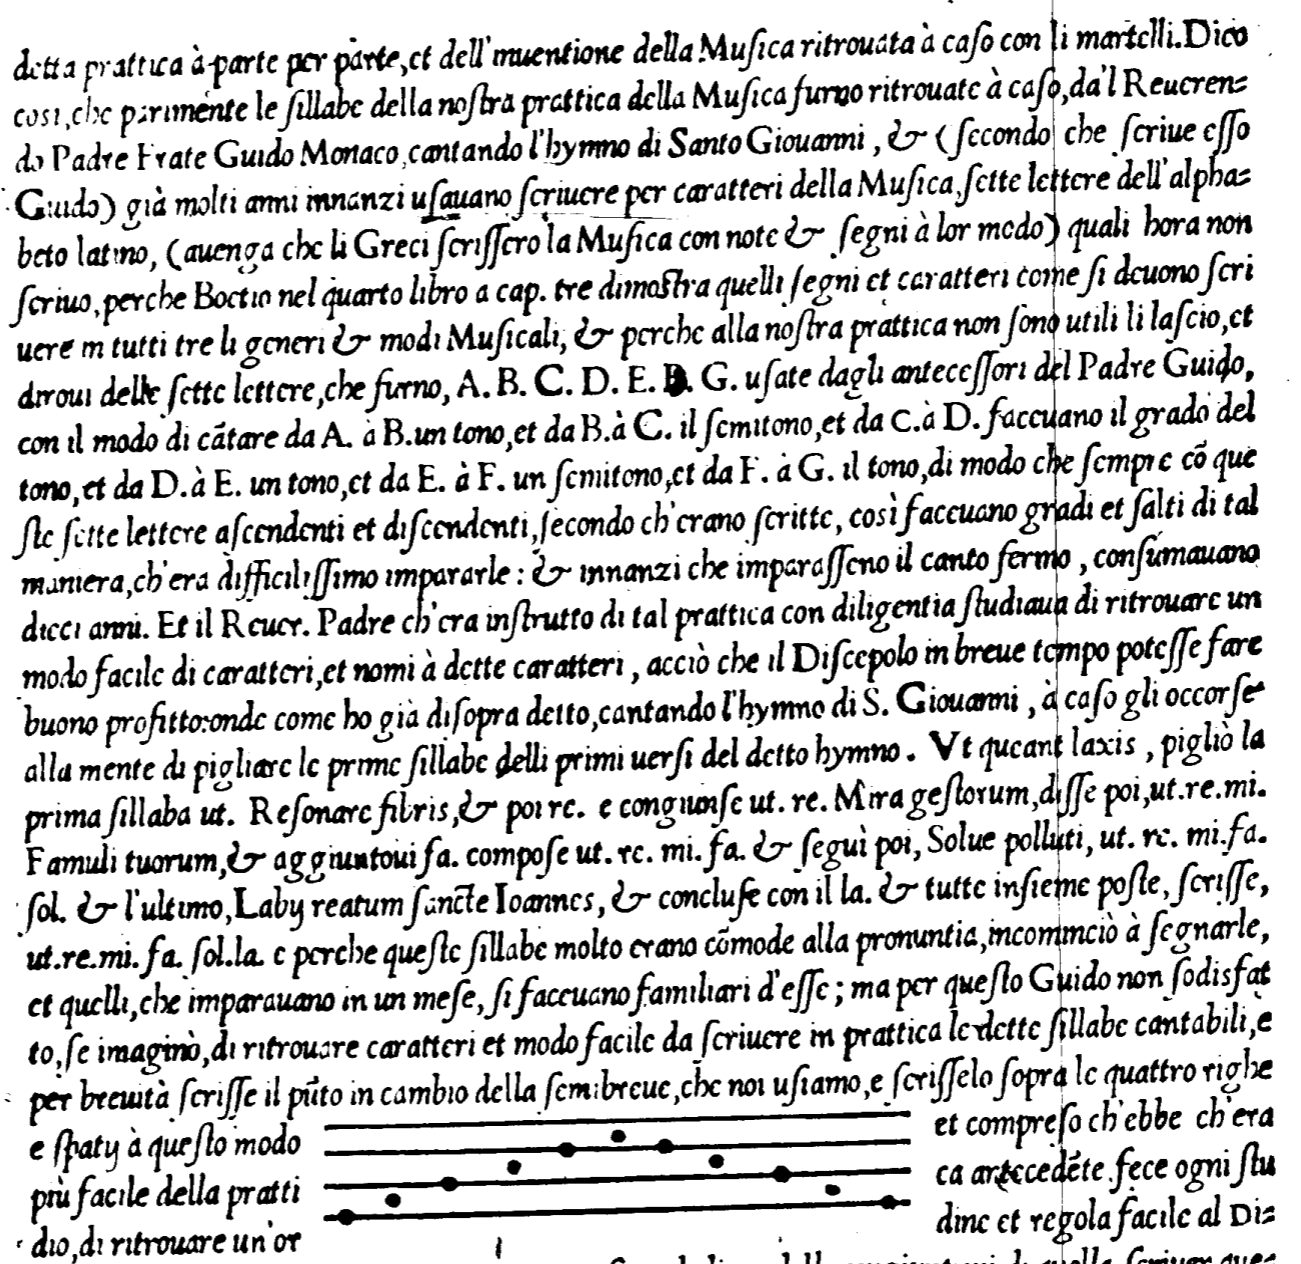 detta prattica à parte per parte,et dell'inuentione della Muſica ritrouata à caſo con li martelli.Dico
cosi,che parimente le ſillabe della noſtra prattica della Muſica furno ritrouate à caſo,da'l Reueren=
do Padre Frate Guido Monaco,cantando l'hymno di Santo Giouanni, & (ſecondo che ſcriue eſſo
Guido) già molti anni innanzi uſauano ſcriuere per caratteri della Muſica,ſette lettere dell'alpha=
beto latino, (auenga che li Greci ſcriſſero la Muſica con note & ſegni à lor modo) quali hora non
ſcriuo,perche Boetio nel quarto libro a cap. tre dimoſtra quelli ſegni et caratteri come ſi deuono ſcri
uere in tutti tre li generi & modi Muſicali, & perche alla noſtra prattica non ſono utili li laſcio,et
diroui delle ſette lettere,che furno, A. B. C. D. E. F. G. uſate dagli anteceſſori del Padre Guido,
con il modo di cãtare da A. à B.un tono,et da B.à C. il ſemitono,et da C.à D. faceuano il grado del
tono,et da D.à E. un tono,et da E. à F. un ſemitono,et da F. à G. il tono,di modo che ſempre cõ que
ſte ſette lettere aſcendenti et diſcendenti,ſecondo ch'erano ſcritte, così faceuano gradi et ſalti di tal
maniera,ch'era difficiliſſimo impararle: & innanzi che imparaſſeno il canto fermo, conſumauano
dieci anni. Et il Reuer. Padre ch'era inſtrutto di tal prattica con diligentia ſtudiaua di ritrouare un
modo facile di caratteri,et nomi à dette caratteri, acciò che il Diſcepolo in breue tempo poteſſe fare
buono profitto:onde come ho già diſopra detto,cantando l'hymno di S. Giouanni, à caſo gli occorſe
alla mente di pigliare le prime ſillabe delli primi uerſi del detto hymno. Vt queant laxis, pigliò la
prima ſillaba ut. Reſonare fibris,& poi re. e congiunſe ut. re. Mira geſtorum,diſſe poi,ut.re.mi.
Famuli tuorum,& aggiuntoui fa. compoſe ut. re. mi. fa. & ſeguì poi, Solue polluti, ut. re. mi.fa.
ſol. & l'ultimo,Labij reatum ſancte Ioannes, & concluſe con il la. & tutte inſieme poſte, ſcriſſe,
ut.re.mi. fa. ſol.la. e perche queſte ſillabe molto erano cõmode alla pronuntia,incominciò à ſegnarle,
et quelli,che imparauano in un meſe, ſi faceuano familiari d'eſſe; ma per queſto Guido non ſodisfat
to,ſe imaginò,di ritrouare caratteri et modo facile da ſcriuere in prattica le dette ſillabe cantabili,e
per breuità ſcriſſe il pũto in cambio della ſemibreue,che noi uſiamo,e ſcriſſelo ſopra le quattro righe
e ſpatij à queſto modo
più facile della pratti
dio,di ritrouare un'or
et compreſo ch'ebbe ch'era
ca antecedẽte fece ogni ſtu
dine et regola facile al Di=